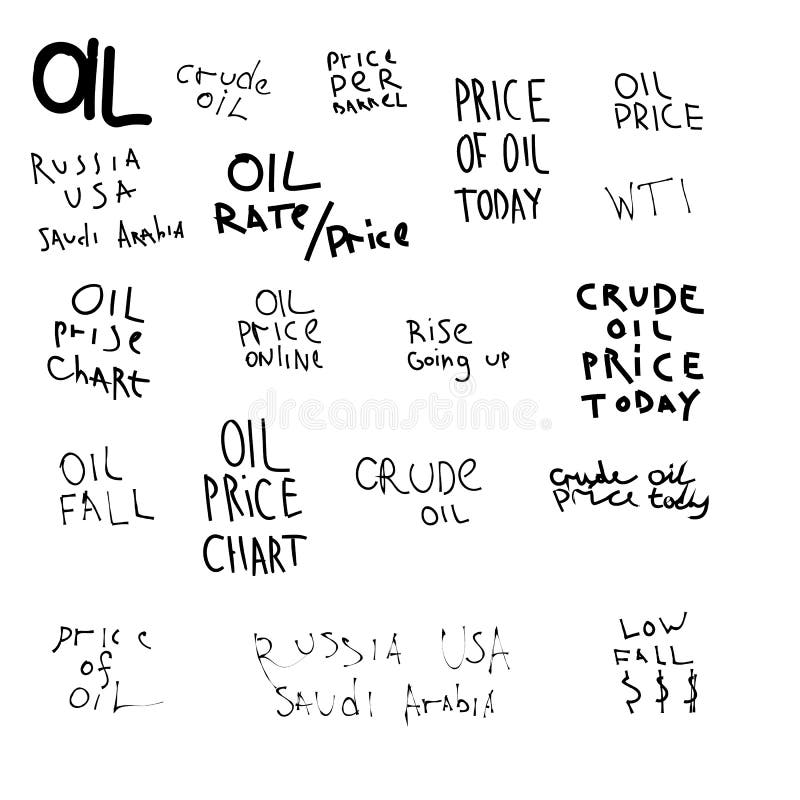 OIL
crude
OIL
Price
PER
BARREL
PRICE
OF OIL
TODAY
OIL
PRICE
RUSSIA
USA
SAUDI ARABIA
OIL
RATE/Price
WTI
OIL
PrISe
CHART
OIL
PRICE
ONLINE
RiSe
Going up
CRUDE
OIL
PRiCE
TODAY
dreamstime.com
OIL
FALL
OIL
PRiCE
CHART
CRUDE
OIL
crude oil
price today
Price
of
OIL
RUSSIA USA
SAUDI ArABIA
LOW
FALL
$ $ $